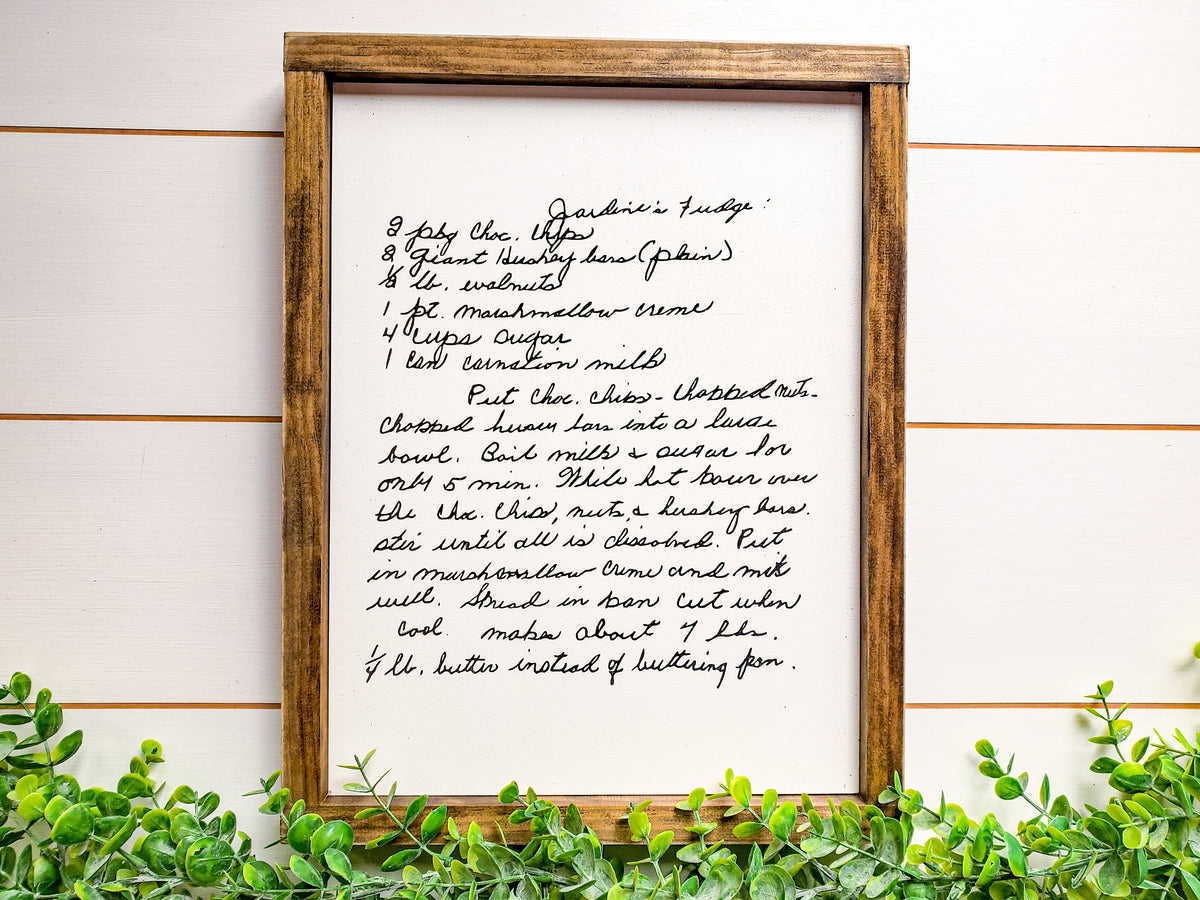 Jardine's Fudge:
2 pkg Choc. Chips
2 giant Hershey bars (plain)
1/2 lb. walnuts
1 pt. marshmallow creme
4 cups sugar
1 can carnation milk
Put choc. chips - chopped nuts -
chopped hersey bars into a large
bowl. Boil milk & sugar for
only 5 min. While hot pour over
the choc. chips, nuts, & hershey bars.
stir until all is dissolved. Put
in marshmallow creme and mix
well. Spread in pan cut when
cool. makes about 4 lbs.
1/4 lb. butter instead of buttering pan.